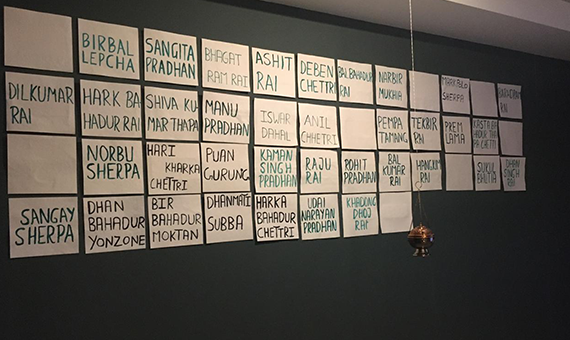 BIRBAL
LEPCHA
SANGITA
PRADHAN
BHAGAT
RAM RAI
ASHIT
RAI
DEBEN
CHETTRI
BAL BAHADUR
RAI
NARBIR
MUKHIA
SHERPA
DILKUMAR
RAI
HARK BA
HADUR RAI
SHIVA KU
MAR THAPA
MANU
PRADHAN
ISWAR
DAHAL
ANIL
CHHETRI
PEMPA
TAMANG
TEKBIR
RAI
PREM
LAMA
NORBU
SHERPA
HARI
KHARKA
CHETTRI
PUAN
GURUNG
KAMAN
SINGH
PRADHAN
RAJU
RAI
ROHIT
PRADHAN
BAL
KUMAR
RAI
RAI
DHAN
SING
RAI
SANGAY
SHERPA
DHAN
BAHADUR
YONZONE
BIR
BAHADUR
MOKTAN
DHANMATI
SUBBA
HARKA
BAHADUR
CHETTRI
UDAI
NARAYAN
PRADHAN
KHADONG
DHOJ
RAI